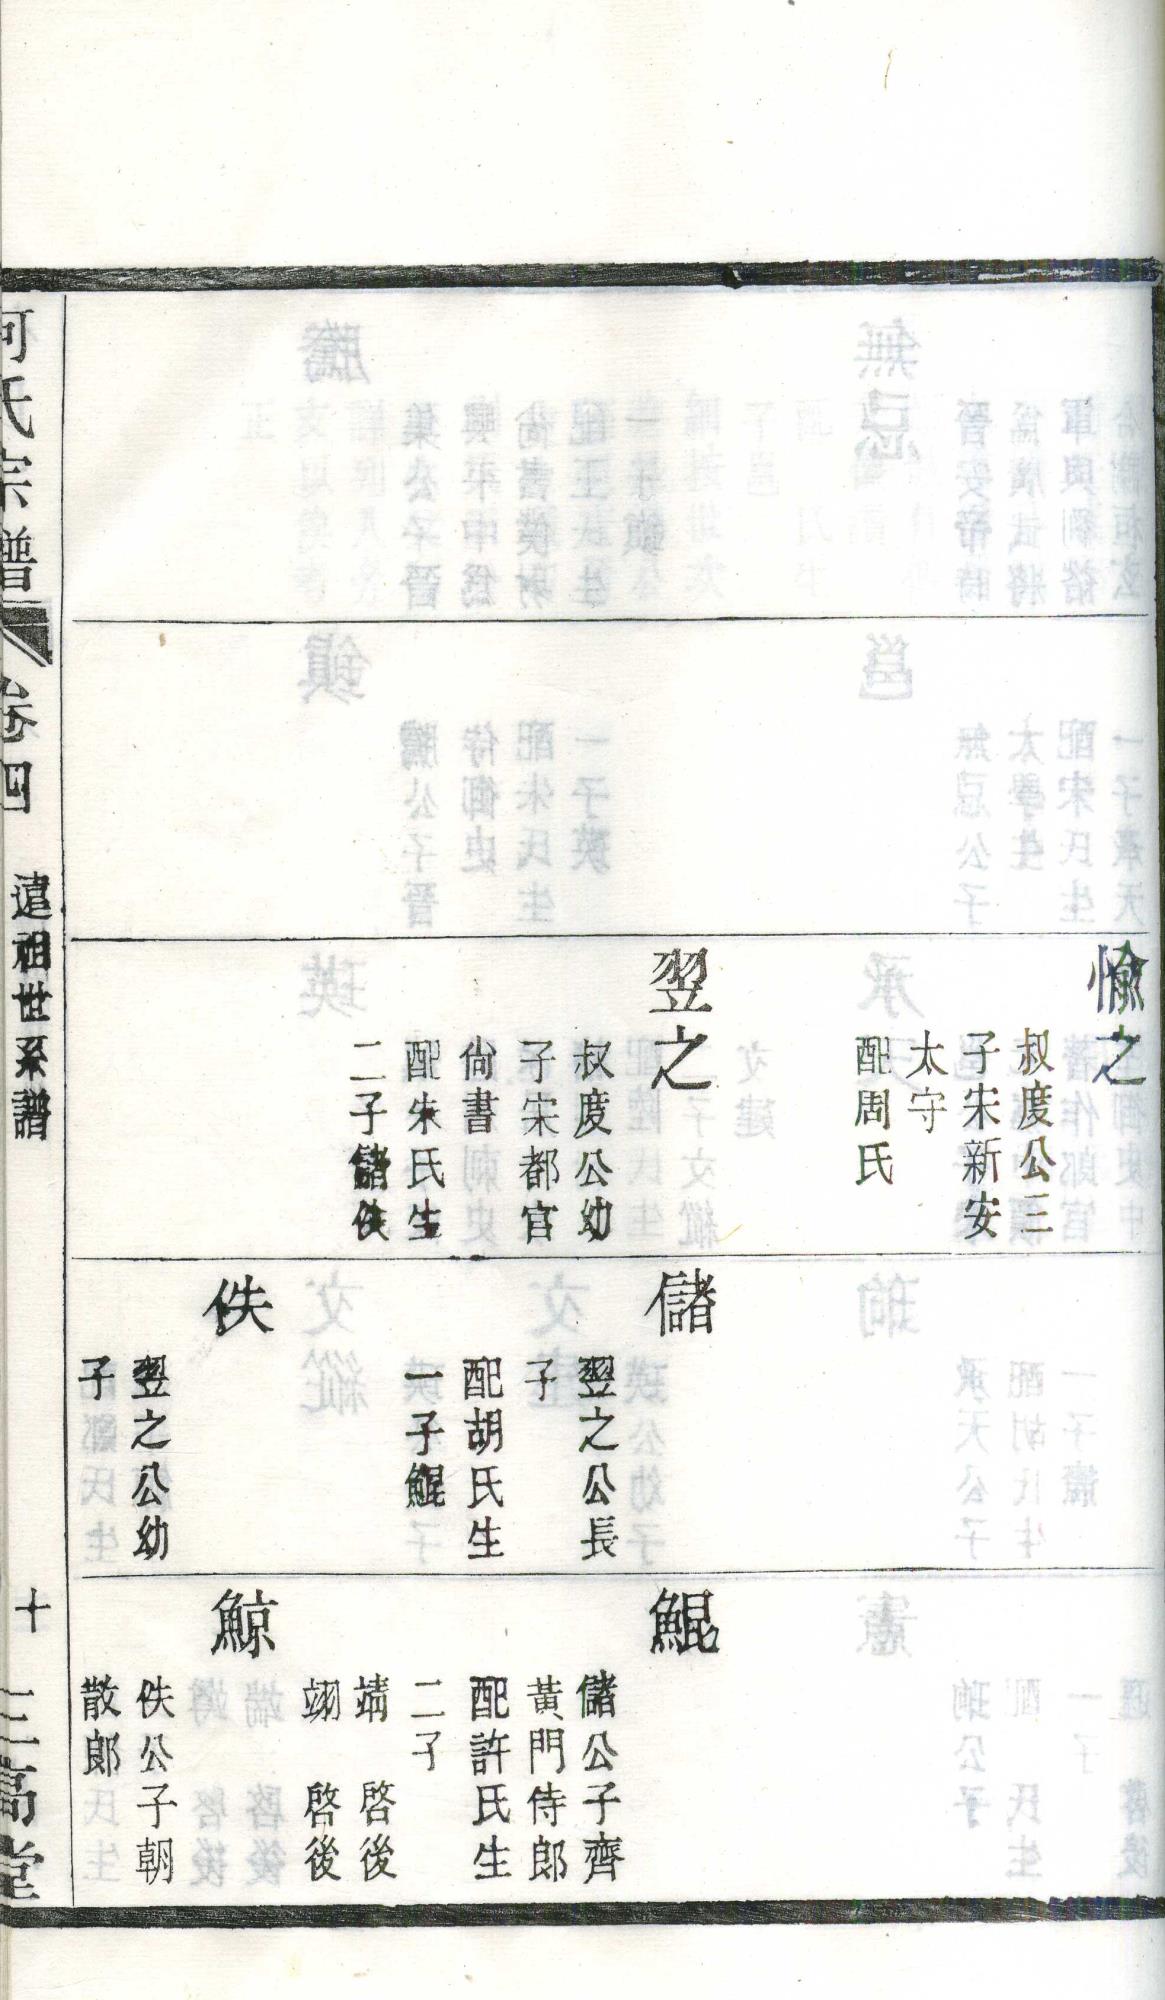 愉之
叔度公三
子宋新安
太守
配周氏
翌之
叔度公幼
子宋都官
尙書
配朱氏生
二子儲佚
儲
翌之公長
子
配胡氏生
一子鯤
佚
翌之公幼
子
鯤
儲公子齊
黃門侍郎
配許氏生
二子
靖 啓後
翊 啓後
鯨
佚公子朝
散郎
何氏宗譜
卷四
遠祖世系譜
十
三高堂